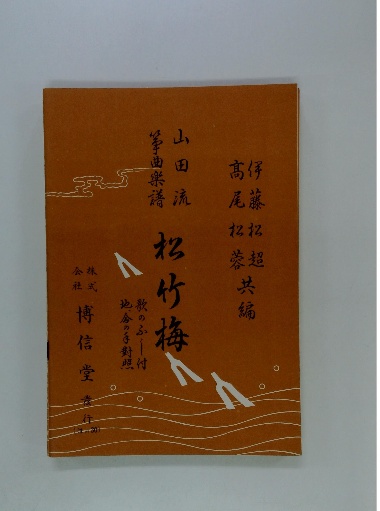 伊藤松超
高尾松蓉 共編
山田流
箏曲楽譜
松竹梅
歌のふし付
地合の手對照
株式
会社
博信堂 發行